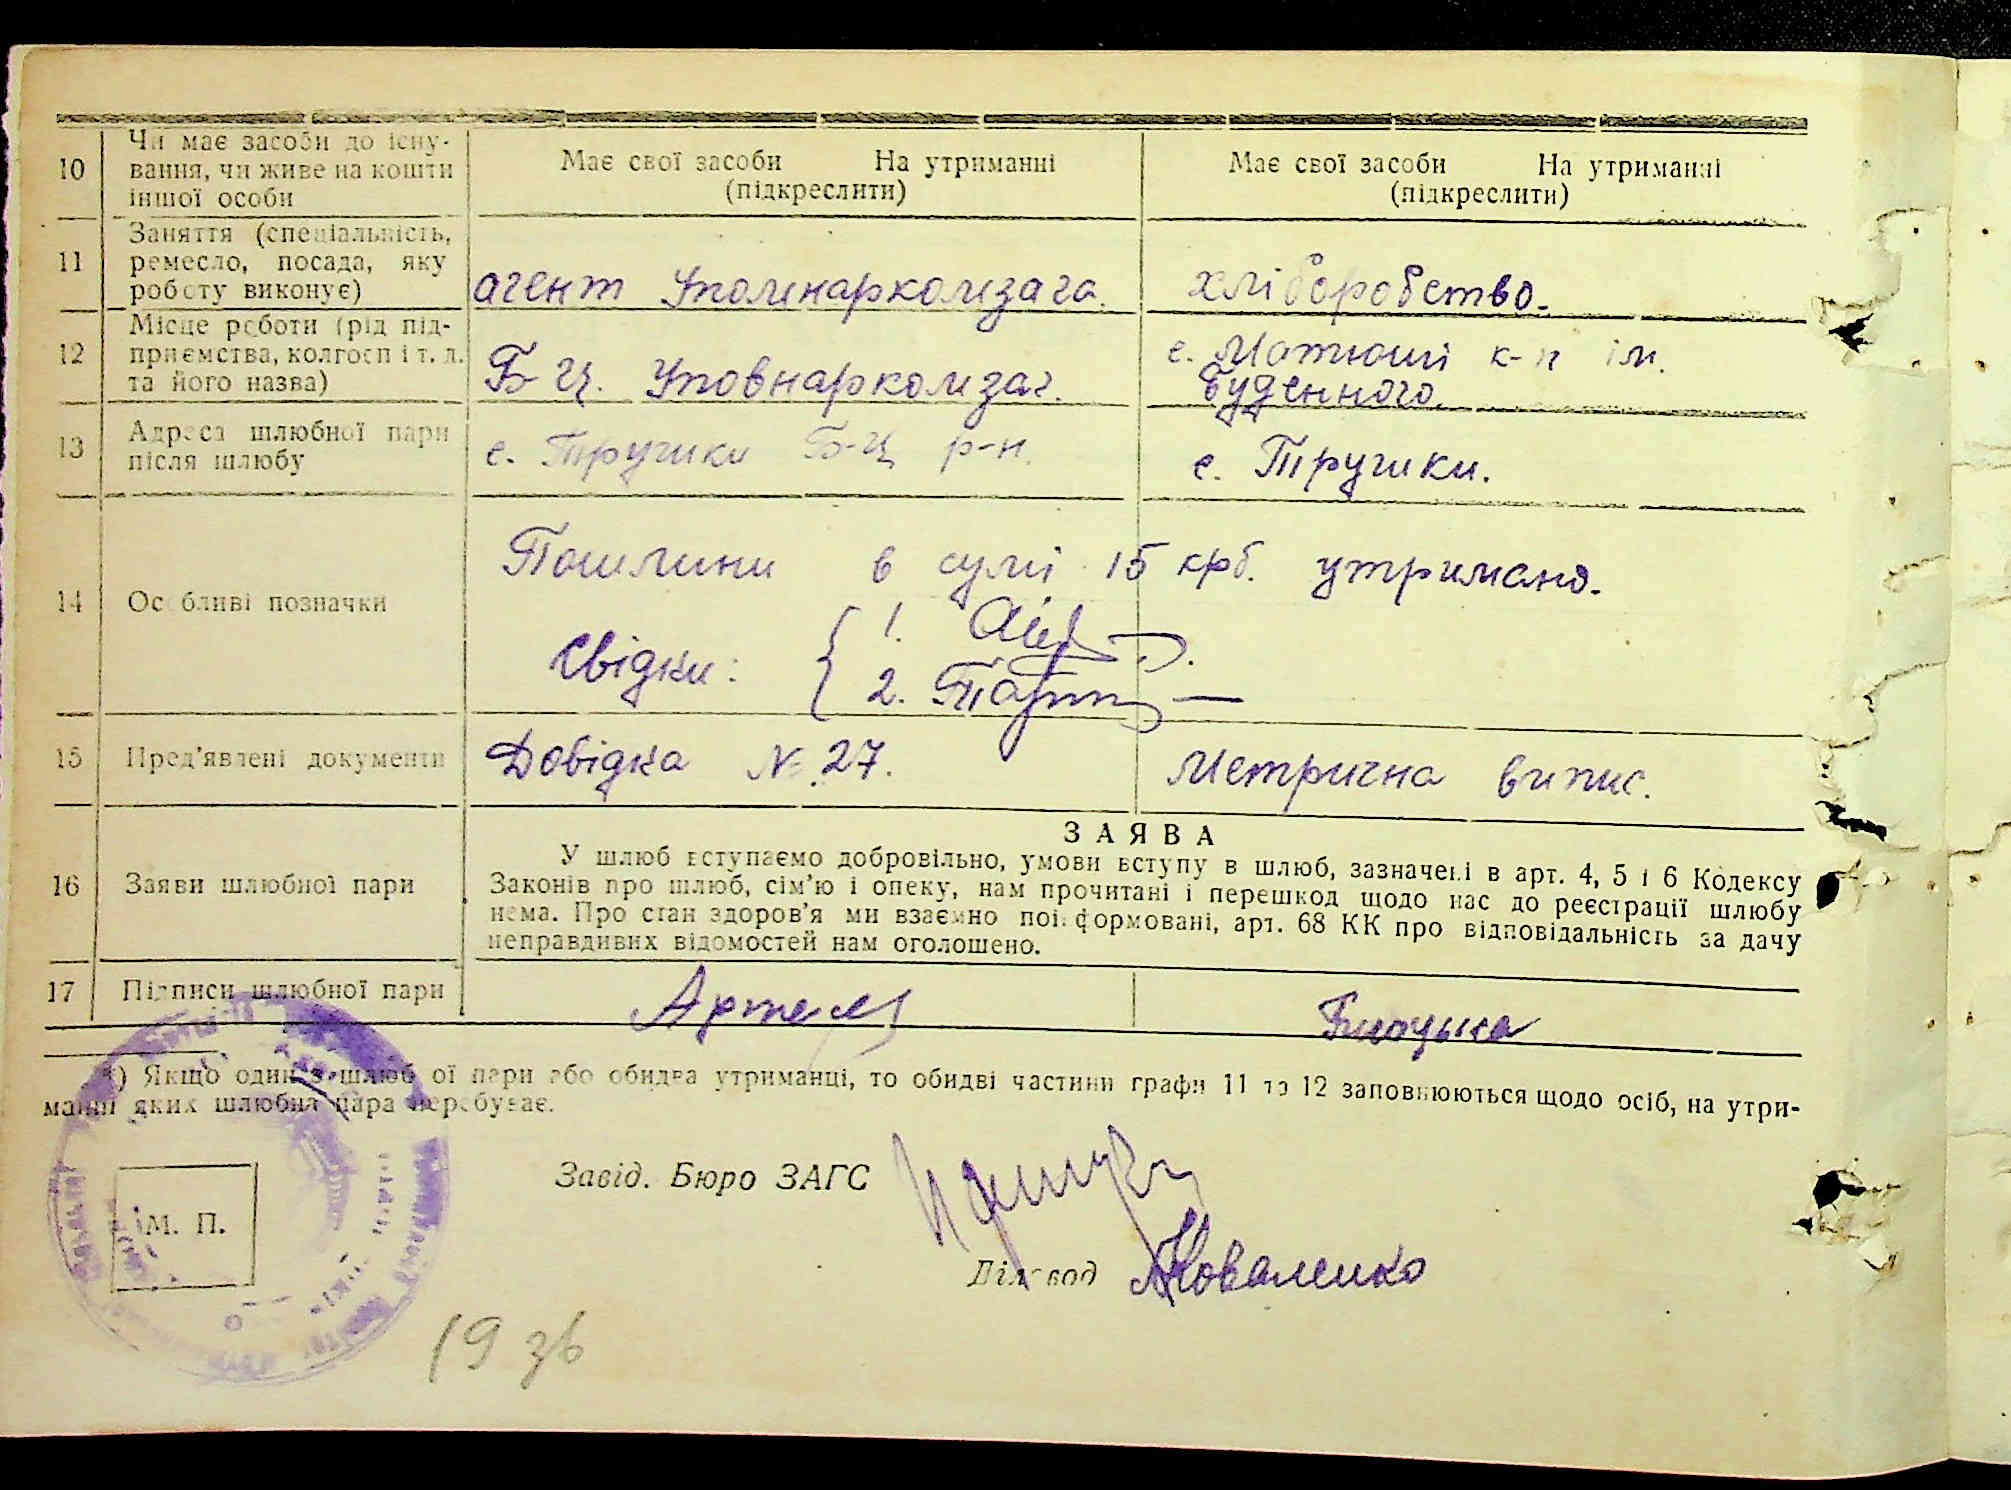 10
Чи має засоби до існу-
вання, чи живе на кошти
іншої особи
Має свої засоби На утриманні
(підкреслити)
Має свої засоби На утриманні
(підкреслити)
11
Заняття (спеціальність,
ремесло, посада, яку
роботу виконує)
агент Уполнаркомзага.
хліборобство.
12
Місце роботи (рід під-
приємства, колгосп і т. д.
та його назва)
Б Ц. Уповнаркомзаг.
с. Матюші к-п ім.
Буденного.
13
Адреса шлюбної пари
після шлюбу
с. Тручики Б-Ц р-н.
с. Тручики.
14
Особливі позначки
Пошлини в сумі 15 крб. утримано.
Свідки: 1.
2.
15
Пред'явлені документи
Довідка № 27.
Метрична випис.
16
Заяви шлюбної пари
ЗАЯВА
У шлюб вступаємо добровільно, умови вступу в шлюб, зазначені в арт. 4, 5 і 6 Кодексу
Законів про шлюб, сім'ю і опеку, нам прочитані і перешкод щодо нас до реєстрації шлюбу
нема. Про стан здоров'я ми взаємно поінформовані, арт. 68 КК про відповідальність за дачу
неправдивих відомостей нам оголошено.
17
Підписи шлюбної пари
Артем
*) Якщо один з шлюбної пари або обидва утриманці, то обидві частини графи 11 та 12 заповнюються щодо осіб, на утри-
манні яких шлюбна пара перебуває.
Завід. Бюро ЗАГС
Діловод Коваленко
М. П.
19 зв